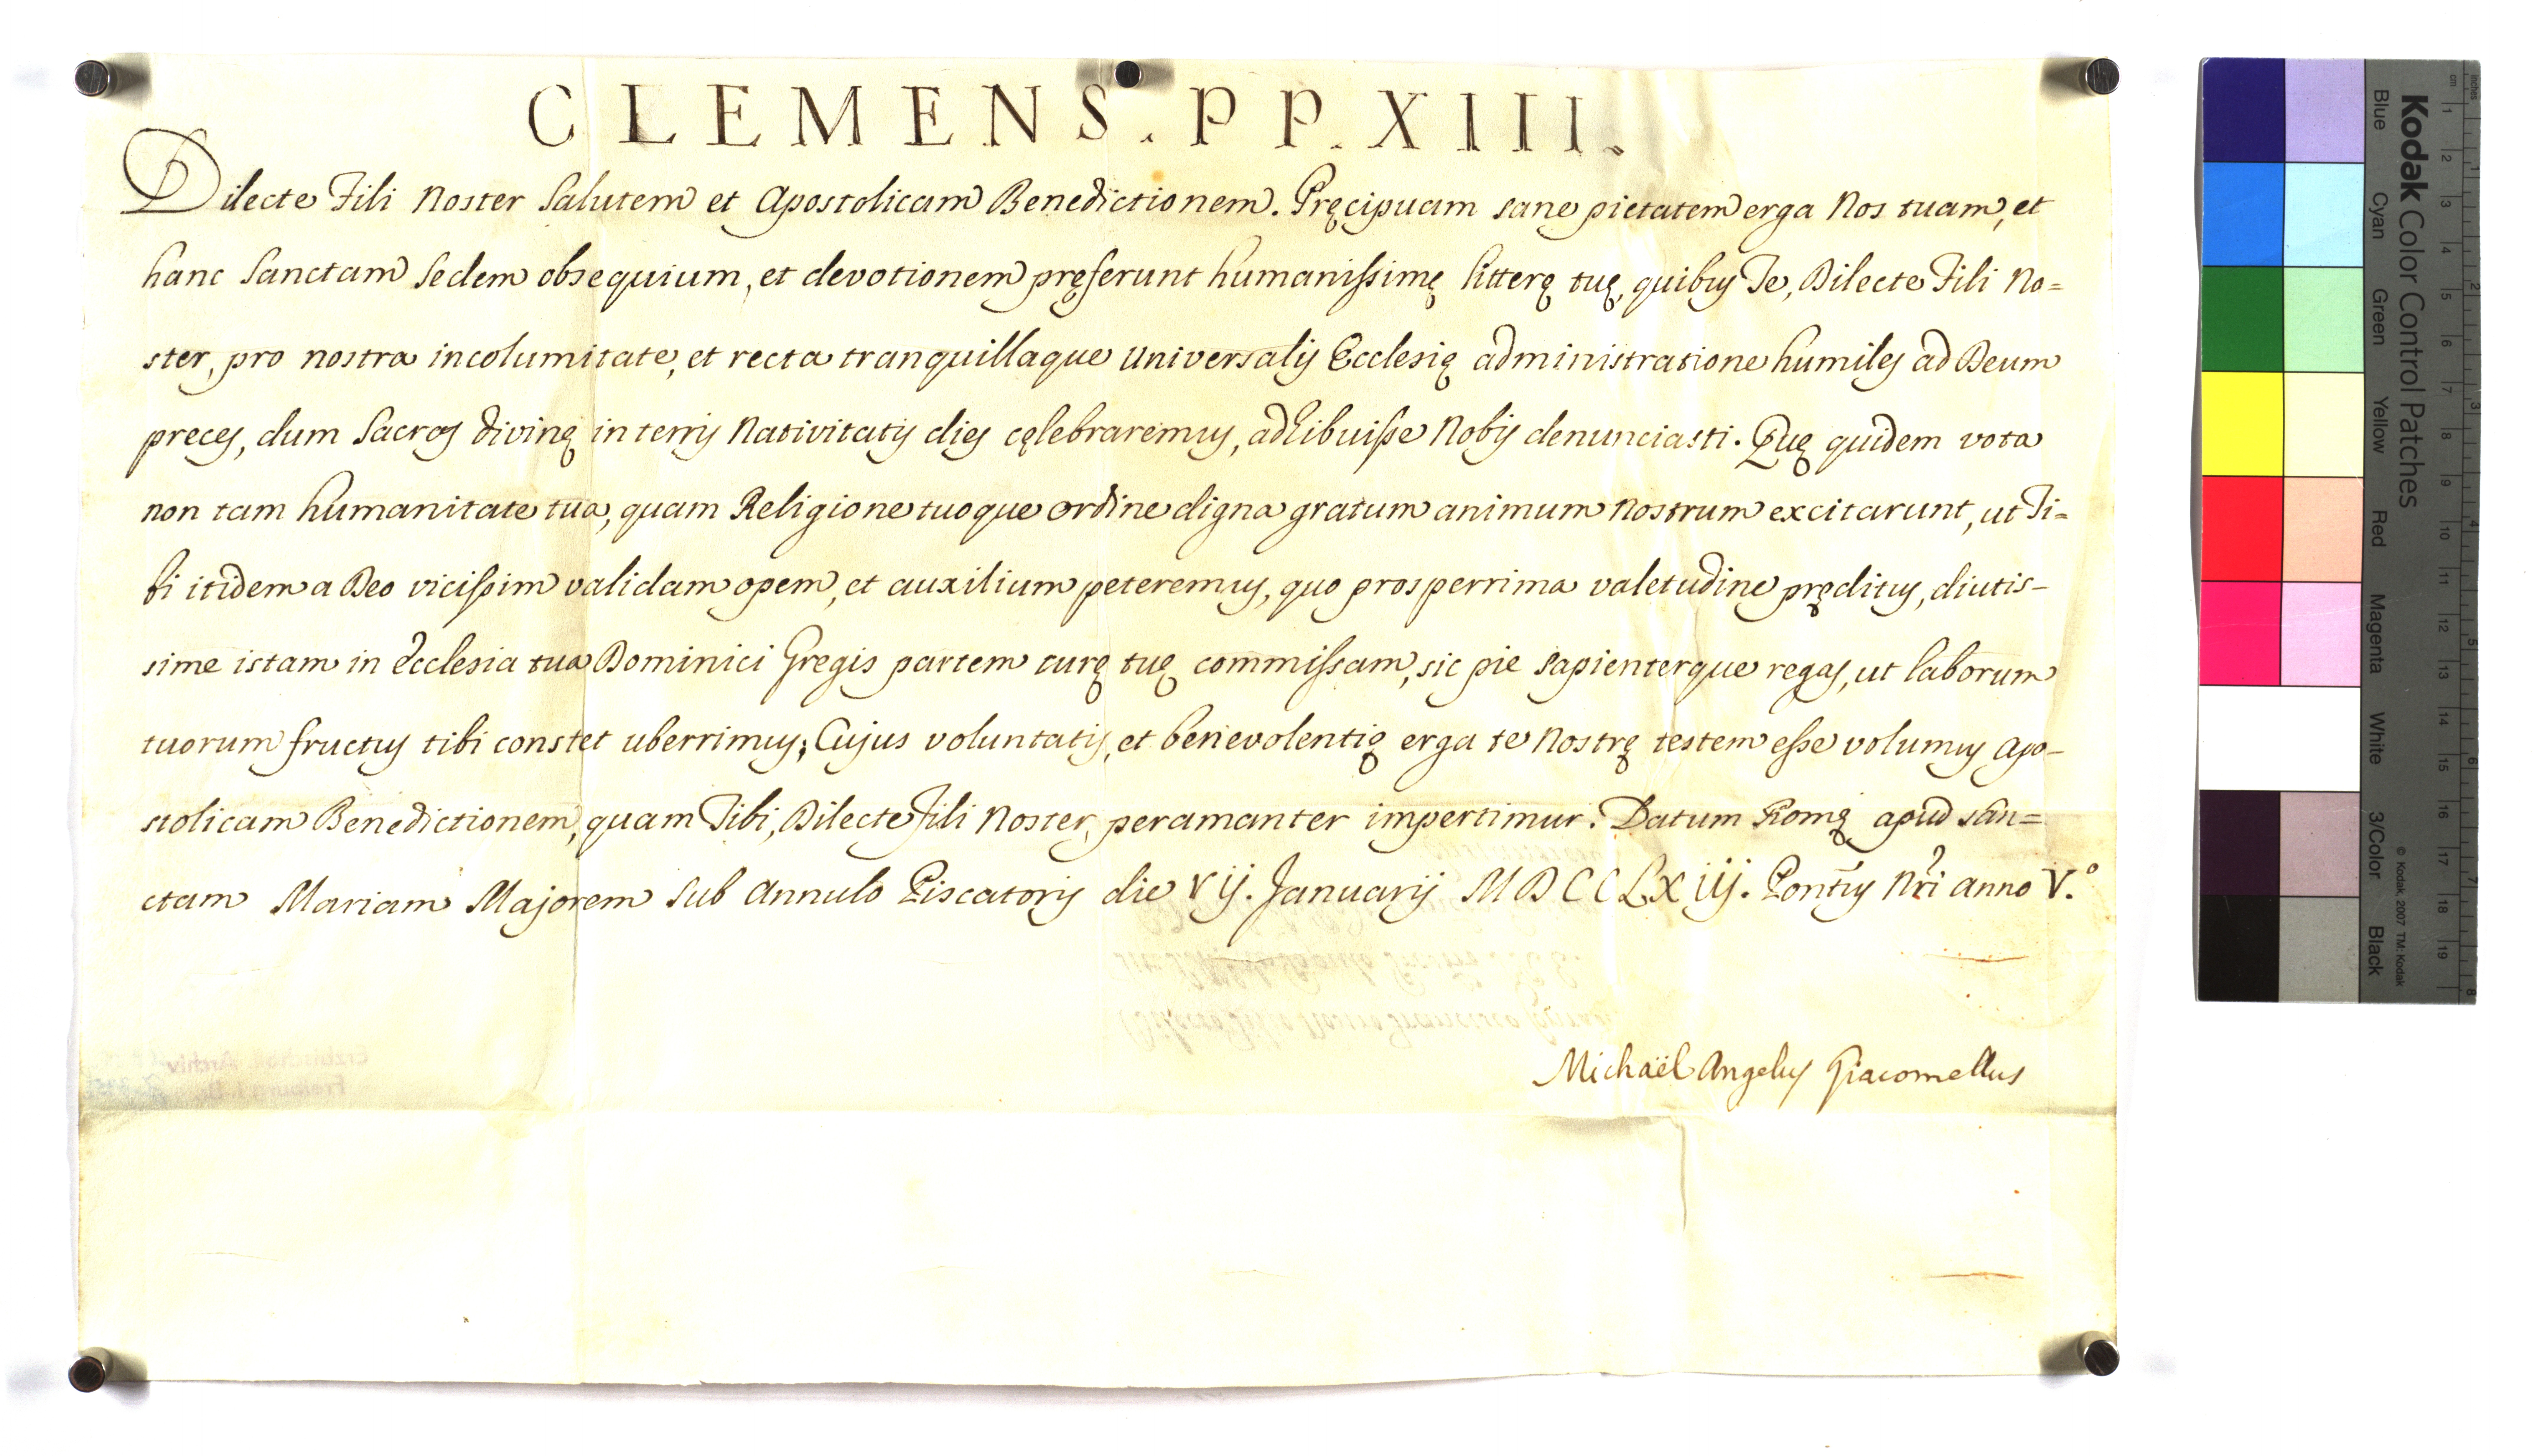 CLEMENS. PP. XIII.
Dilecte Fili Noster Salutem et Apostolicam Benedictionem. Pręcipuam sane pietatem erga Nos tuam, et
hanc Sanctam Sedem obsequium, et devotionem pręferunt humanissimę litterę tuę, quibus Te, Dilecte Fili No=
ster, pro nostra incolumitate, et recta tranquillaque universalis Ecclesię administratione humiles ad Deum
preces, dum Sacros divinę in terris Nativitatis dies cęlebraremus, adhibuisse Nobis denunciasti. Quę quidem vota
non tam humanitate tua, quam Religione tuoque ordine digna gratum animum nostrum excitarunt, ut Ti=
bi itidem a Deo vicissim validam opem, et auxilium peteremus, quo prosperrima valetudine pręditus, diutis-
sime istam in Ecclesia tua Dominici Gregis partem curę tuę commissam, sic pie sapienterque regas, ut laborum
tuorum fructus tibi constet uberrimus; Cujus voluntatis, et benevolentię erga te Nostrę testem esse volumus Apo-
stolicam Benedictionem, quam Tibi, Dilecte Fili Noster, peramanter impertimur. Datum Romę apud San=
ctam Mariam Majorem sub Annulo Piscatoris die Vij. Januarij MDCCLXiij. Pontus Nri anno V.º
Michaël Angelus Giacomellus
Kodak Color Control Patches
Blue Cyan Green Yellow Red Magenta White 3/Color Black
© Kodak, 2007 TM: Kodak
cm 1 2 3 4 5 6 7 8 9 10 11 12 13 14 15 16 17 18 19
inches 1 2 3 4 5 6 7 8